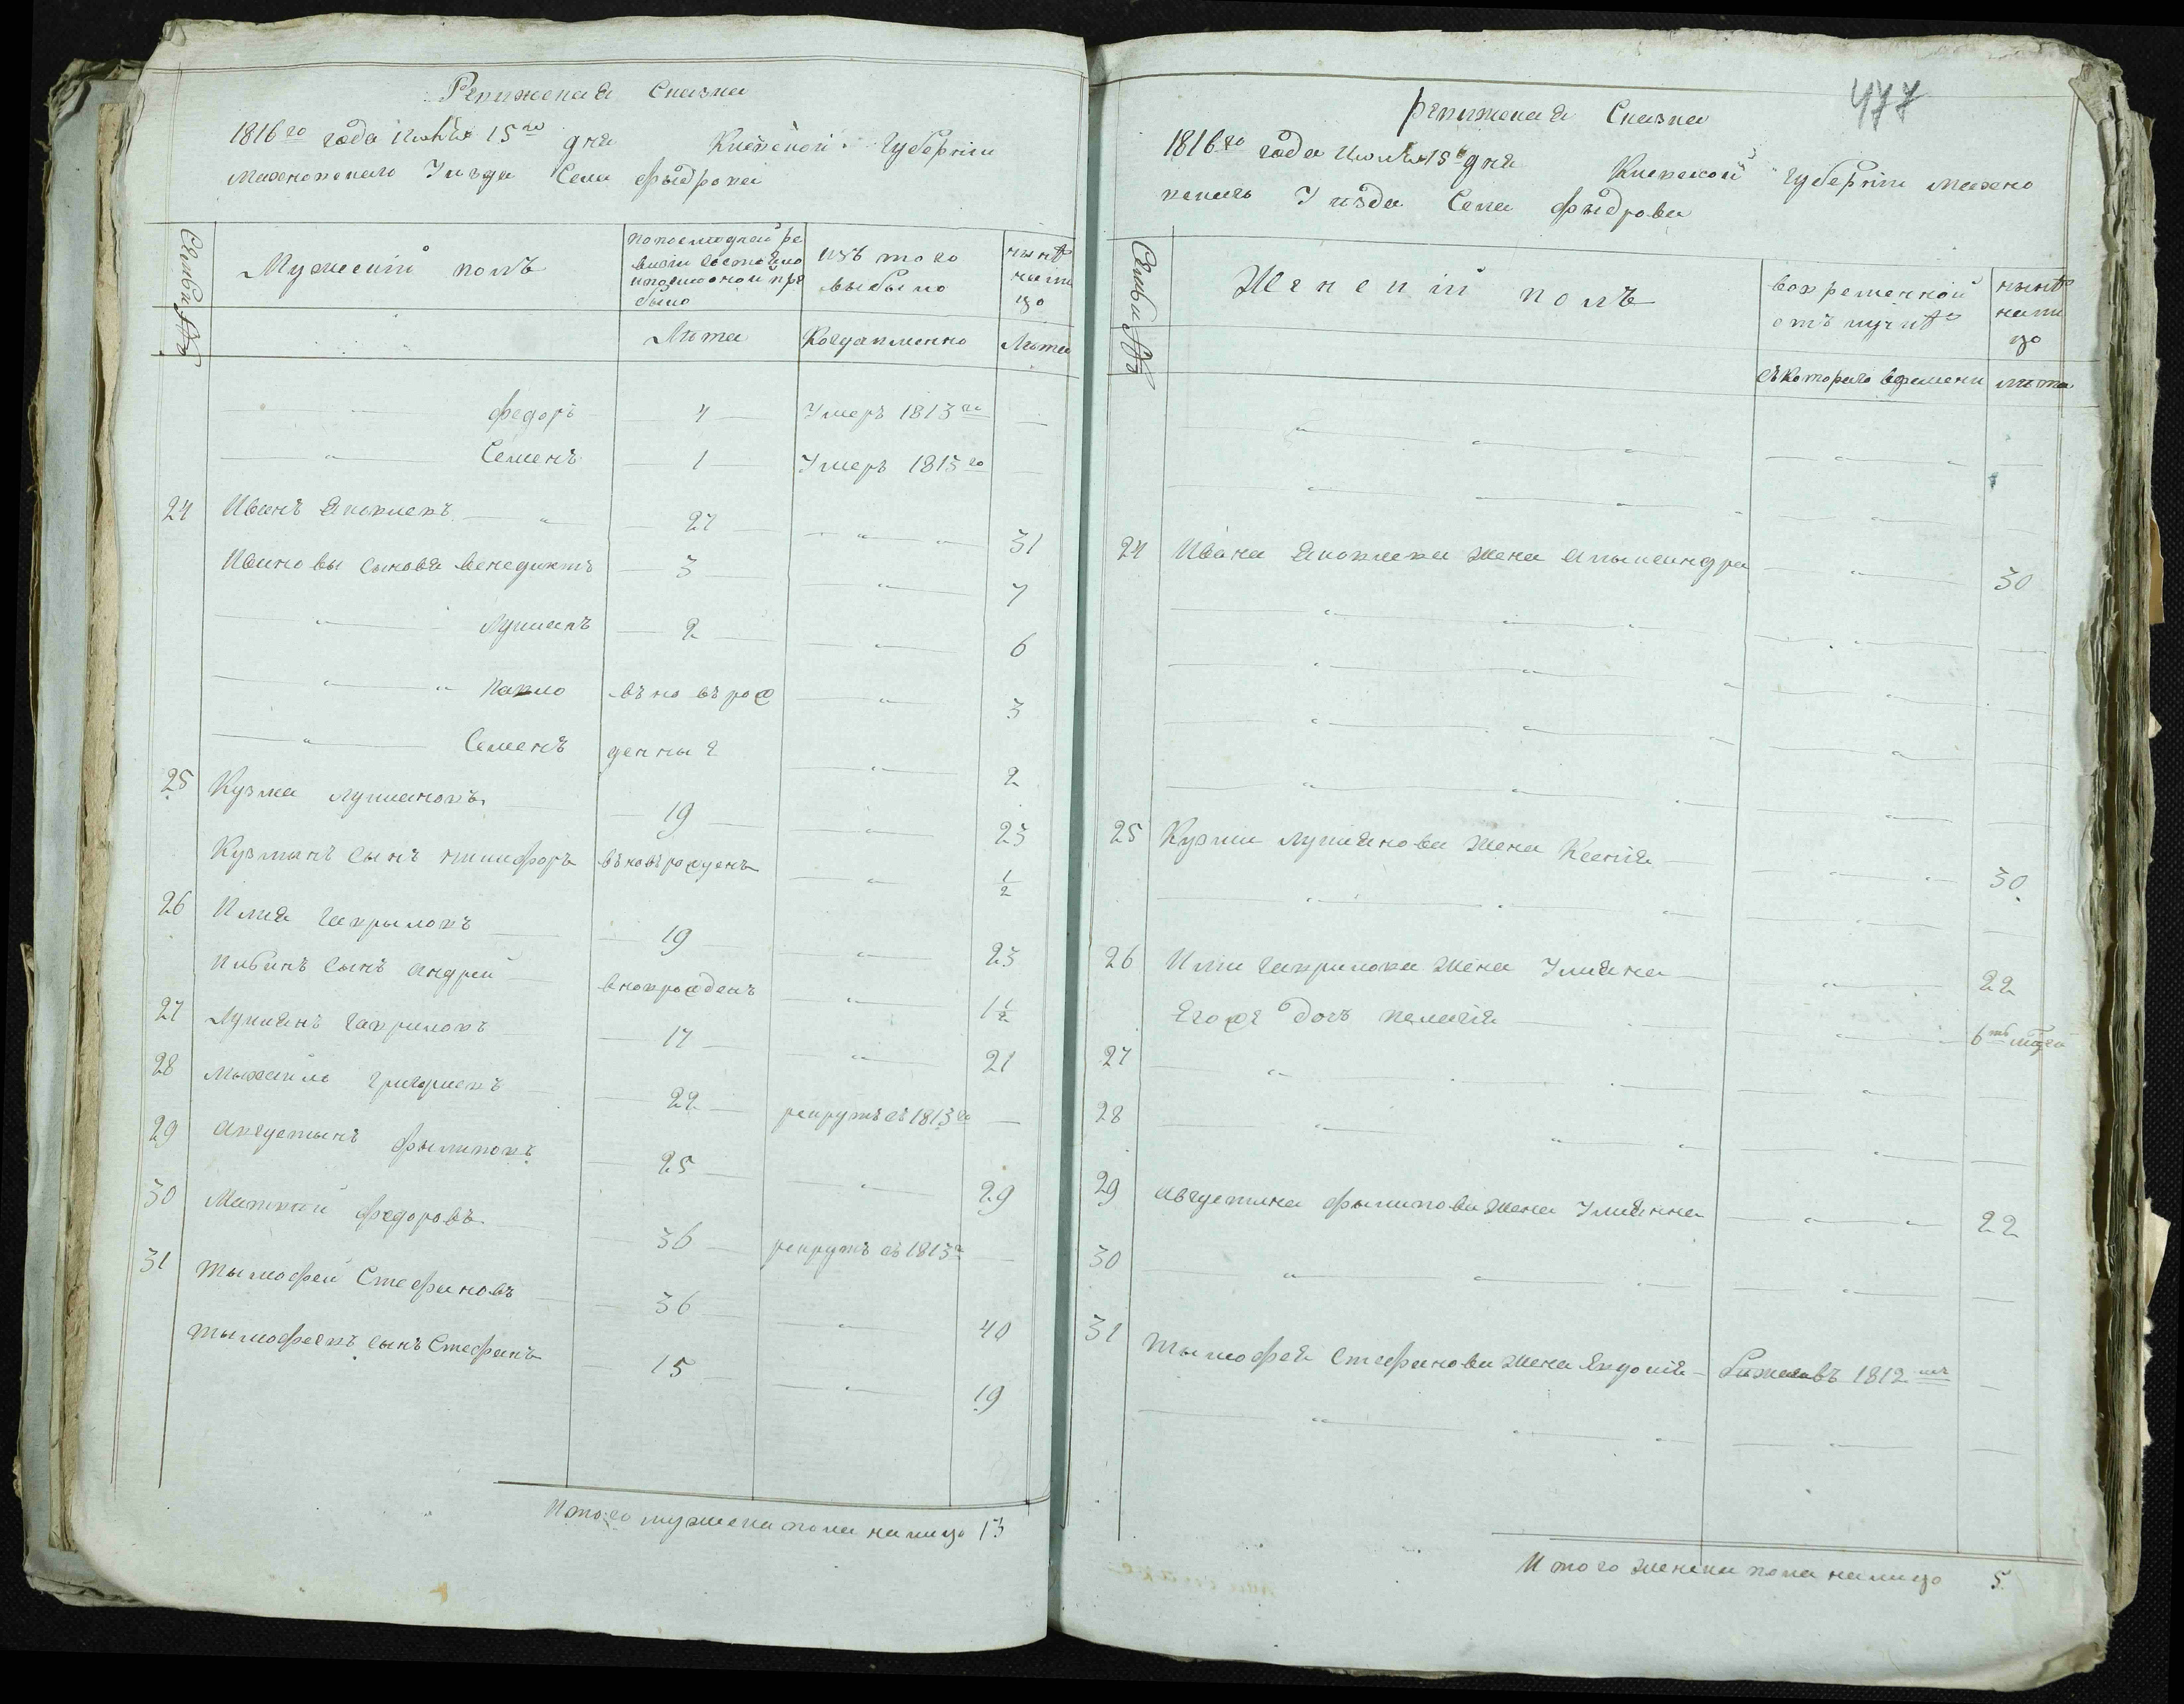 Ревижская Сказка
1816го года Июля 15го дня Киевской Губернии
Махновского Уезда Села Фыдровки
Семьи №№
Мужеский полъ
по последней ре
визии состояло
и после оной при
было
изъ того
выбыло
нынѣ
нали
цо
Лѣта
Когда именно
Лѣта
Федоръ 4 Умеръ 1813го
Семенъ 1 Умеръ 1815го
24 Иванъ Яковлевъ 27 31
Ивановы сыновя Венедиктъ 3 7
Лукиянъ 2 6
Павло вновъ рож 3
Семенъ денныя 2
25 Кузма Лукияновъ 19 23
Кузминъ сынъ Никифоръ вновърожденъ 1/2
26 Илия Гаврыловъ 19 23
Ильинъ сынъ Андрей вноврожденъ 1 1/2
27 Лукиянъ Гавриловъ 17 21
28 Мыхайло Григориевъ 22 рекрутъ въ 1813го
29 Августынъ Фылиповъ 25 29
30 Матвий Федоровъ 36 рекрутъ въ 1813го
31 Тымофей Стефановъ 36 40
Тымофеевъ сынъ Стефанъ 15 19
Итого мужеска пола налицо 13
477
Ревижская Сказка
1816го года Июля 15го дня Киевской Губернии Махно
вскаго Уезда Села Фыдровки
Семьи №№
Женский полъ
во временной
отлучкѣ
нынѣ
нали
цо
съ котораго времени
лѣта
24 Ивана Яковлева жена Алыксандра 30
25 Кузми Лукиянова жена Ксения 30
26 Илии Гаврилова жена Улияна 22
Егоже дочъ Пелагия 6ть
27
28
29 Августина Фылипова жена Улиянна 22
30
31 Тымофея Стефанова жена Явдокия въ 1812мъ
Итого женска пола налицо 5